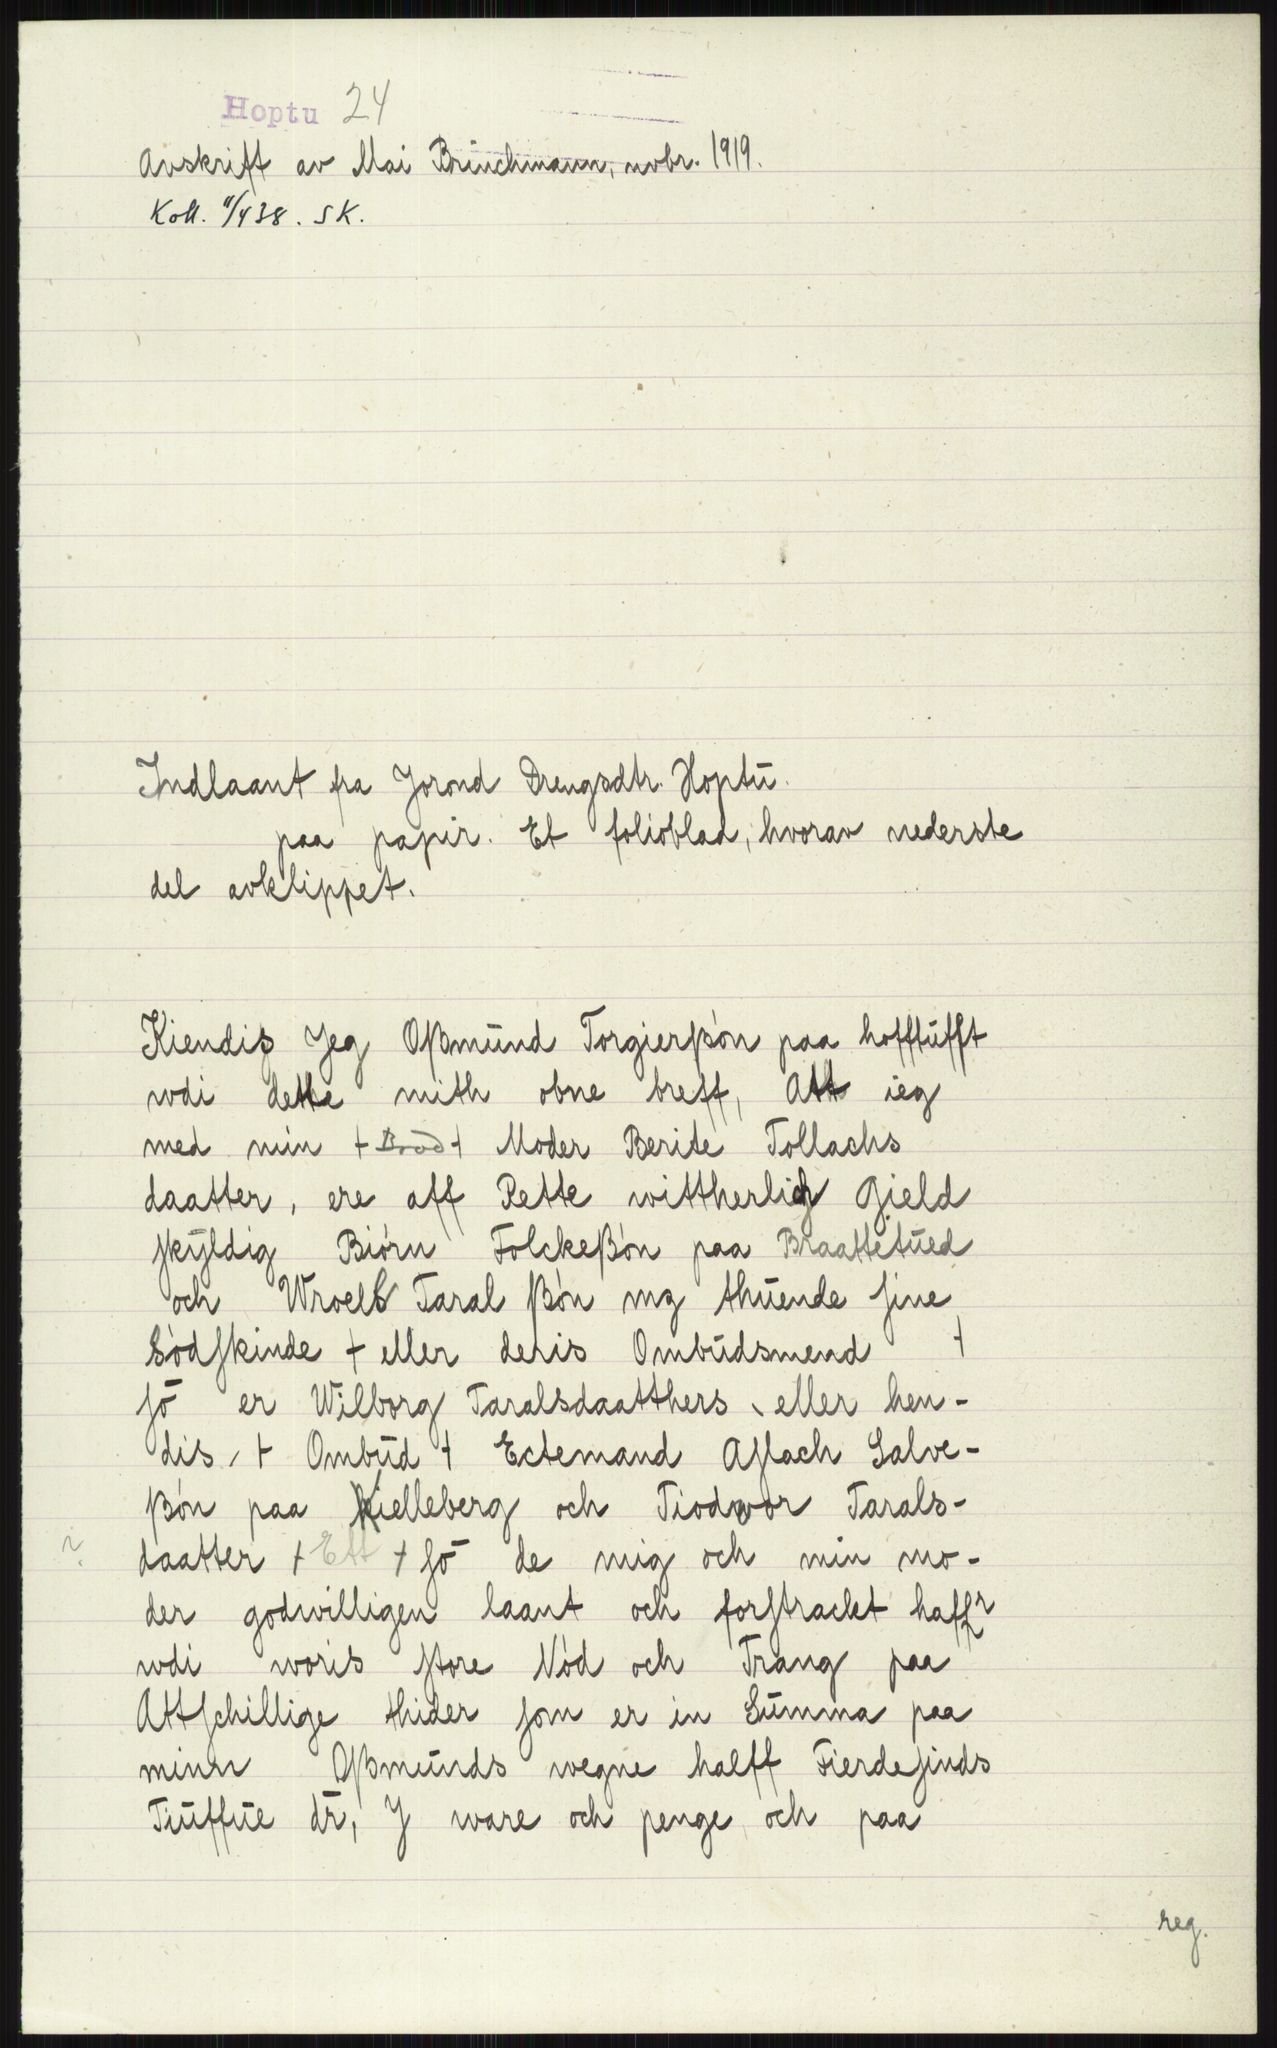 Hoptu 24
Avskrift av Mai Brŭchmann, novbr. 1919.
Koll. 11/4 38. SK.
Indlaant fra Jorond Drengsdtr. Hoptŭ.
paa papir. Et folioblad, hvorav nederste
del avklippet.
Kiendis Jeg Oßmŭnd Torgierßøn paa hofftŭfft
wdi dette mith obne breff, Att ieg
med min + Brod + Moder Berite Tollachs
daatter, ere aff Rette wittherlich Gield
skÿldig Biørn Folckeßøn paa Braattetŭed
och Wroels Taral ßøn mz thŭende sine
Sødskinde + eller deris Ombŭdsmend +
só er Wilborg Taralsdaatthers, eller hen-
dis, + Ombŭd + Ectemand Aslach Salve-
ßøn paa Kielleberg och Tiodwor Tarals-
? daatter + Ett + só de mig och min mo-
der godwilligen laant och forstrackt haffr
wdi woris store Nød och Trang paa
Attschillige thider som er in Sŭmma paa
minn Oßmŭnds wegne halff Fierdesinds
Tiŭffŭe dr, J ware och penge och paa
reg.